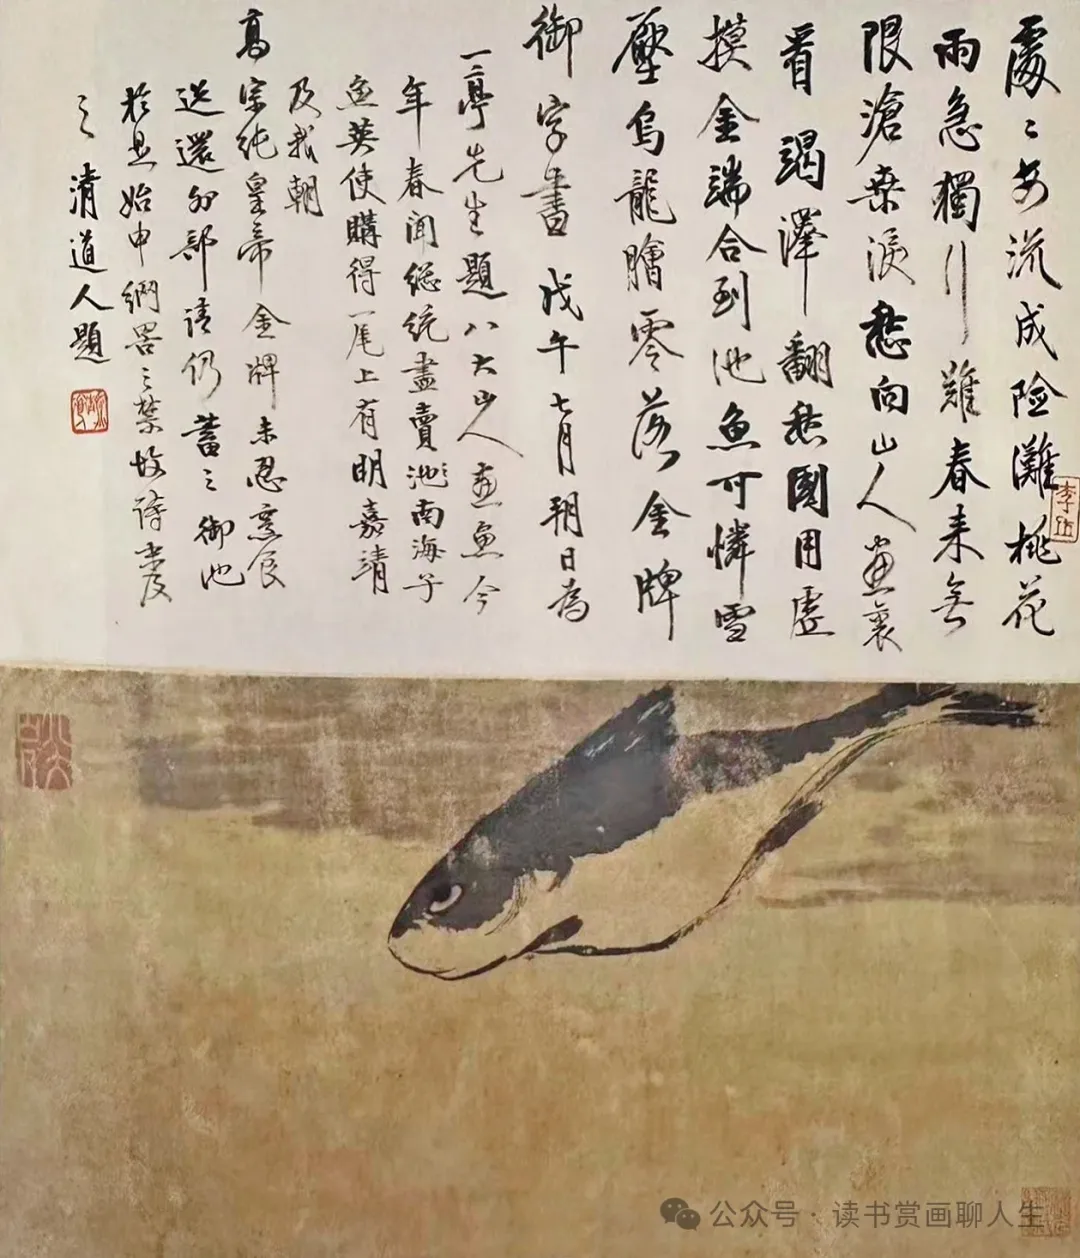 處〻安流成險灘桃花
雨急獨行難春來無
限滄桑淚愁向山人畫裏
看 竭澤翻愁國用虛
摸金端合到池魚可憐雪
壓烏龍膾零落金牌
御字書 戊午七月朔日為
一亭先生題八大山人畫魚今
年春聞總統盡賣池南海子
魚英使購得一尾上有明嘉靖
及我朝
高宗純皇帝金牌未忍烹食
送還外部請仍蓄之御池
於是始申網罟之禁故詩及
之 清道人題
公众号 · 读书赏画聊人生